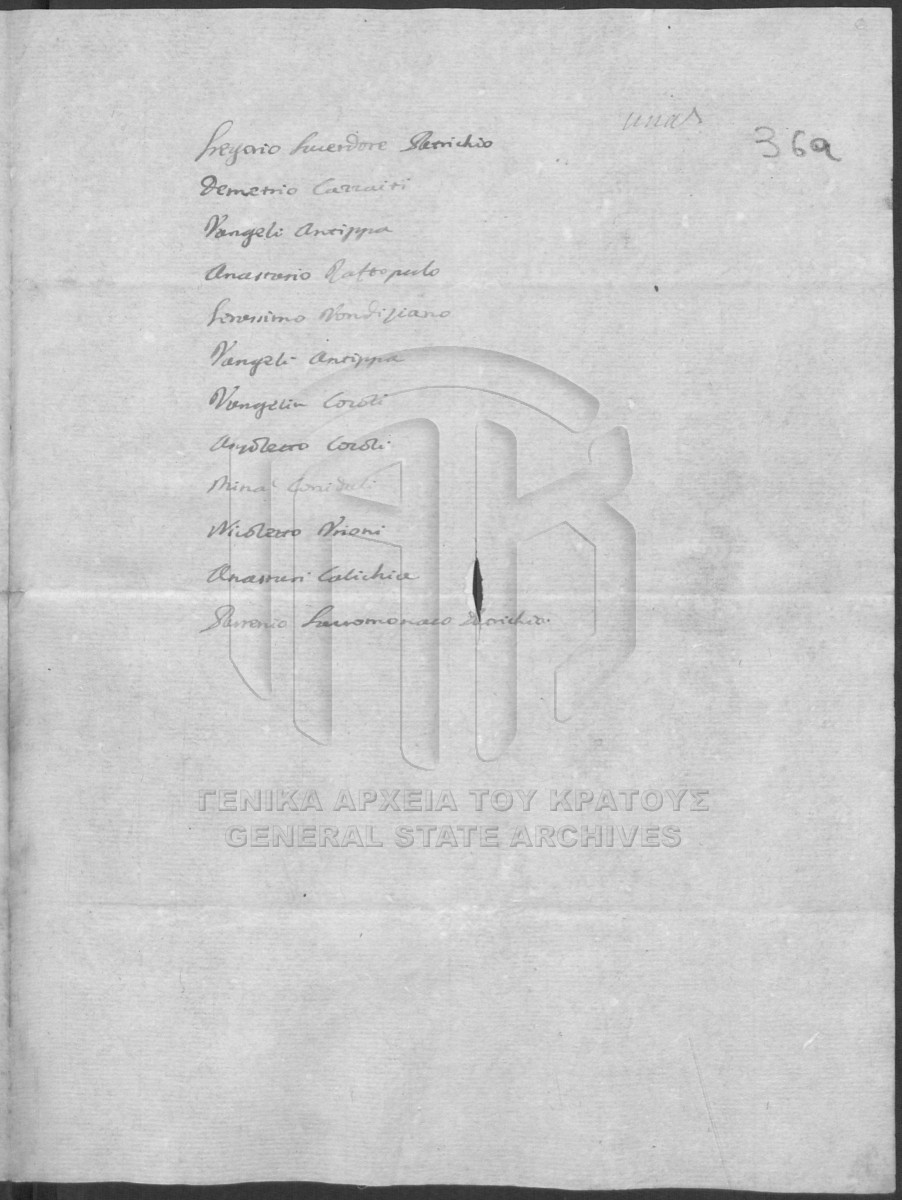 36a
Gregorio Sacerdote Patrichio
Demetrio Cazzaiti
Vangeli Antippa
Anastasio Raftopulo
Gerassimo Vondiziano
Vangeli Antippa
Vangelin Cozoli
Angoletto Cozoli
Mina
Nicoletto Vrioni
Anastasi Calichia
Partenio Jacromonaco Patrichio.
ΓΕΝΙΚΑ ΑΡΧΕΙΑ ΤΟΥ ΚΡΑΤΟΥΣ
GENERAL STATE ARCHIVES